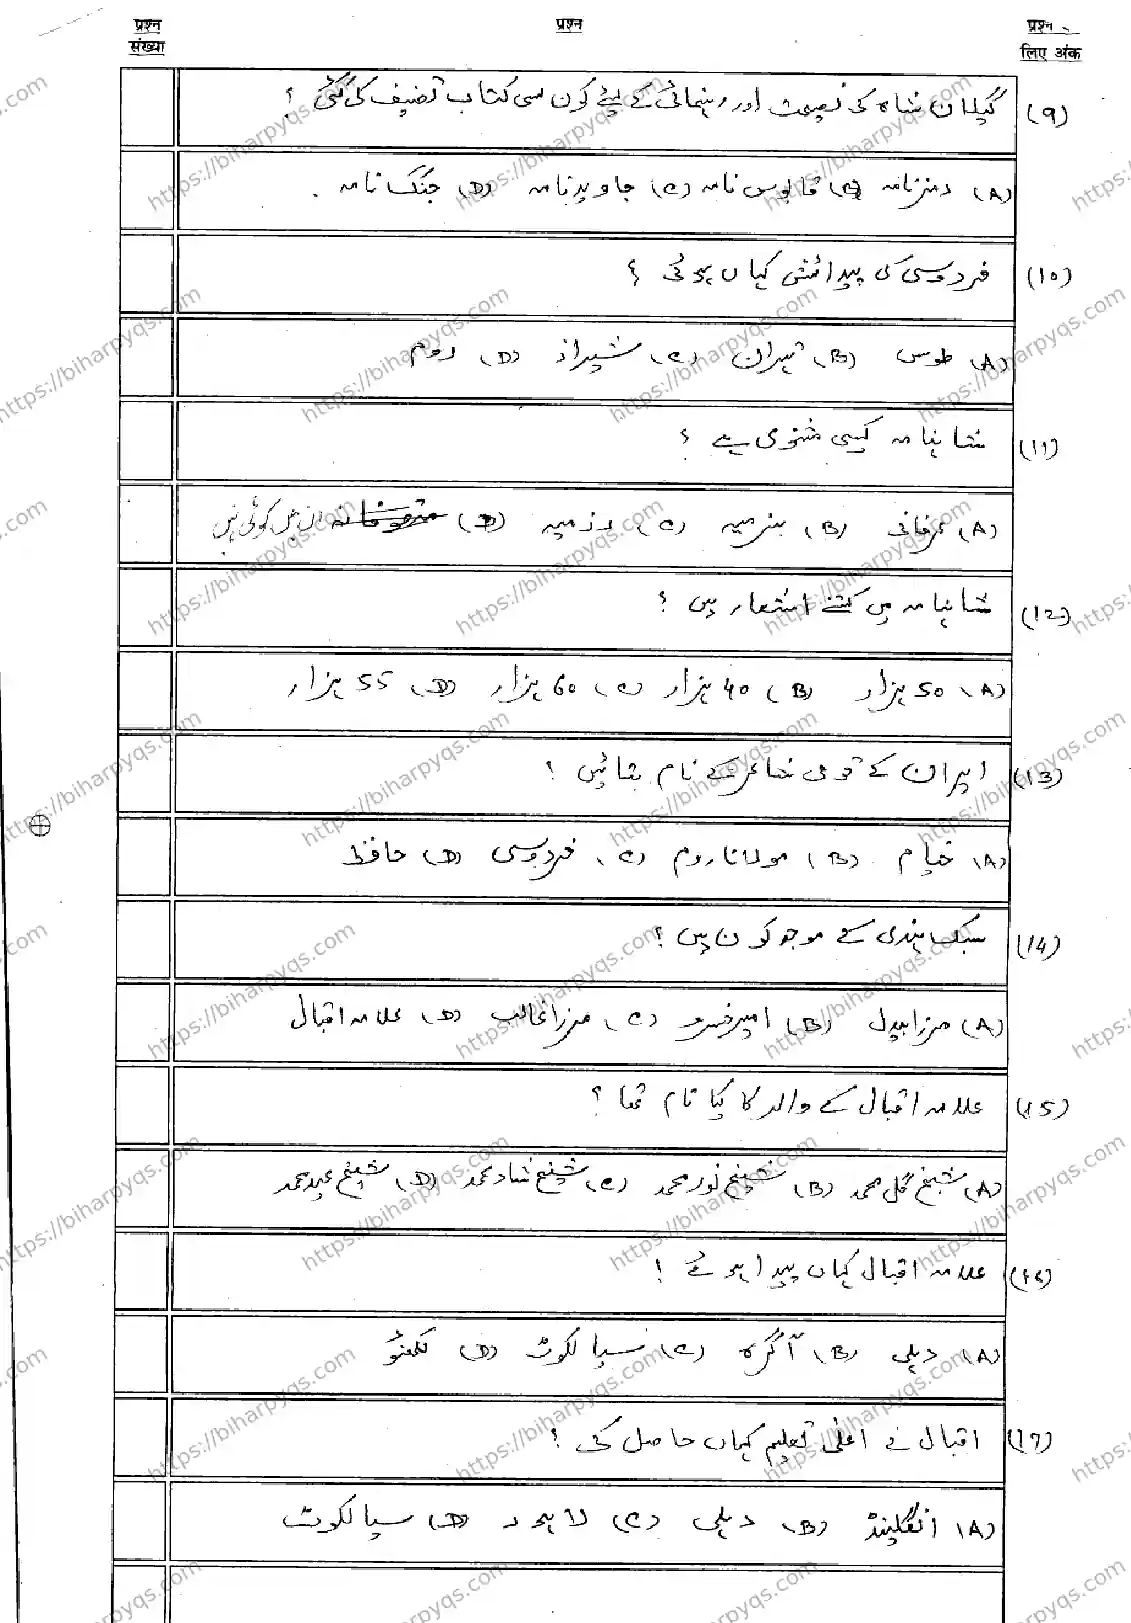 प्रश्न संख्या
प्रश्न
प्रश्न
लिए अंक
(9) گیلان شاہ کی نصیحت اور رہنمائی کے لیئے کون سی کتاب تصنیف کی گئی ؟
(A) (B) قابوس نامہ (C) جاوید نامہ (D) جنگ نامہ .
(10) فردوسی کی پیدائش کہاں ہوئی ؟
(A) طوس (B) تہران (C) شیراز (D) روم
(11) شاہنامہ کیسی مثنوی ہے ؟
(A) عرفانی (B) بزمیہ (C) رزمیہ (D) ان میں کوئی نہیں
(12) شاہنامہ میں کتنے اشعار ہیں ؟
(A) 50 ہزار (B) 40 ہزار (C) 60 ہزار (D) 55 ہزار
(13) ایران کے قومی شاعر کے نام بتائیں ؟
(A) خیام (B) مولانا روم (C) فردوسی (D) حافظ
(14) سبک ہندی کے موجد کون ہیں ؟
(A) مرزا بیدل (B) امیر خسرو (C) مرزا غالب (D) علامہ اقبال
(15) علامہ اقبال کے والد کا کیا نام تھا ؟
(A) شیخ گل محمد (B) شیخ نور محمد (C) شیخ شاد محمد (D) شیخ عبد محمد
(16) علامہ اقبال کہاں پیدا ہوئے ؟
(A) دہلی (B) آگرہ (C) سیالکوٹ (D) لکھنؤ
(17) اقبال نے اعلیٰ تعلیم کہاں حاصل کی ؟
(A) انگلینڈ (B) دہلی (C) لاہور (D) سیالکوٹ
https://biharpyqs.com